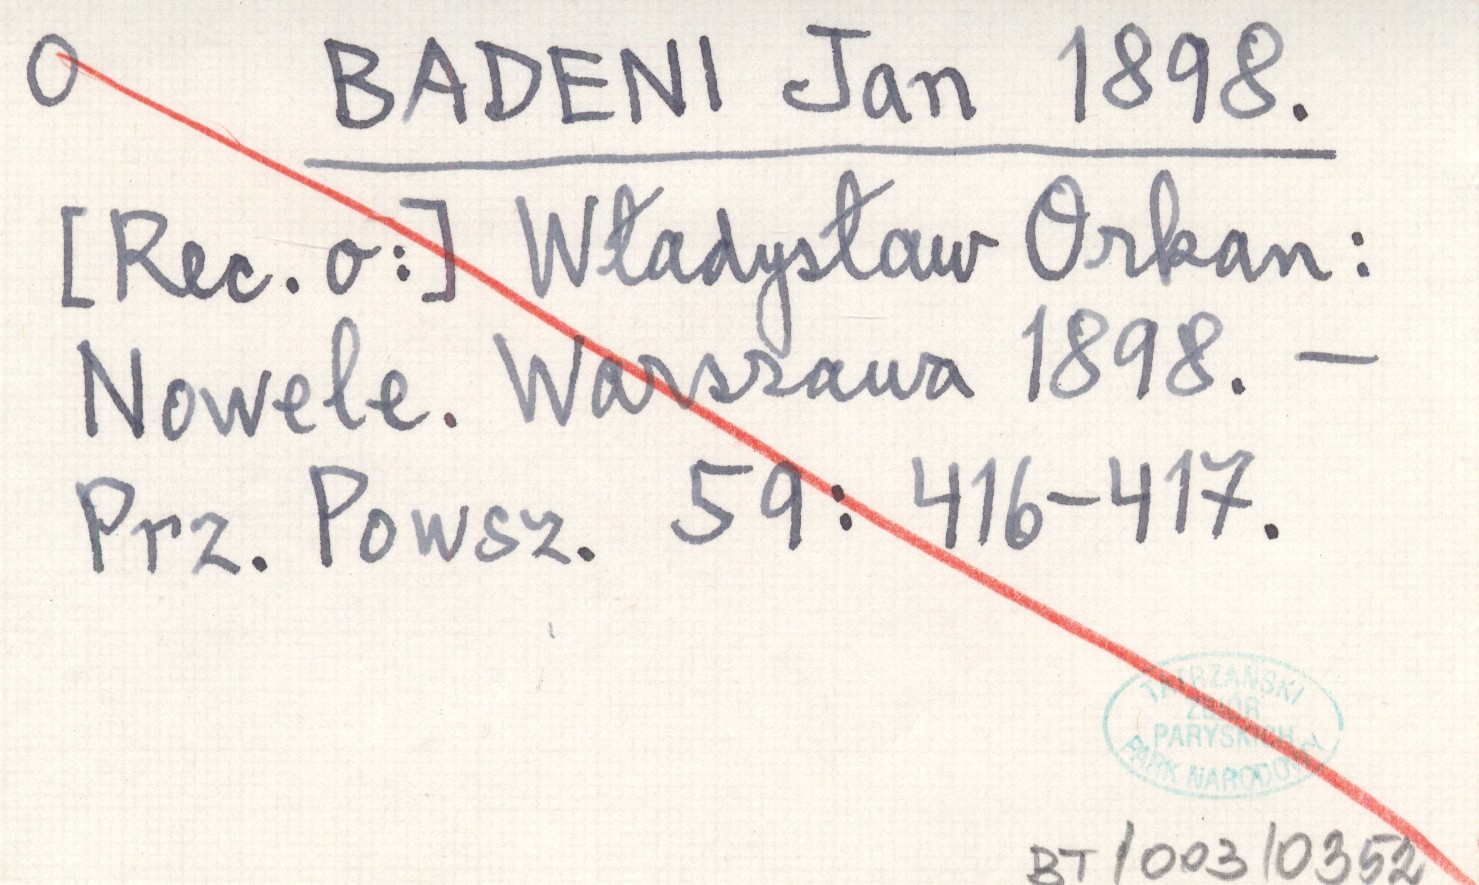 O BADENI Jan 1898.
[Rec. o:] Władysław Orkan:
Nowele. Warszawa 1898. —
Prz. Powsz. 59: 416-417.
TATRZAŃSKI
ZBIÓR
PARYSKICH
PARK NARODOWY
BT/003/0352